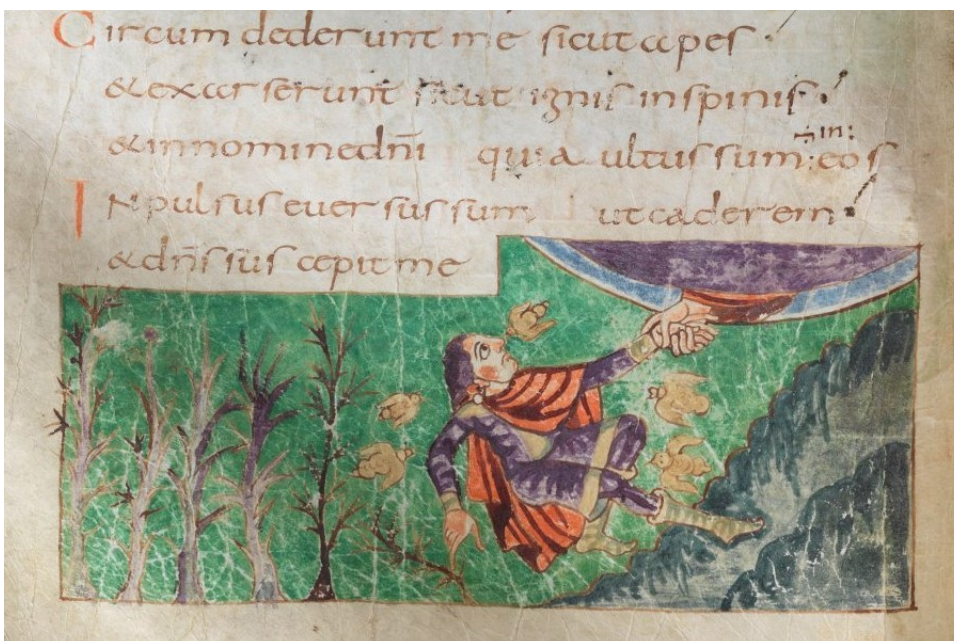 Circumdederunt me sicut apes·
&exarserunt sicut ignis inspinis·
in:
&innomine dñi quia ultus sum:eos
INpulsus euersus sum ut caderem
&dñs suscepit me